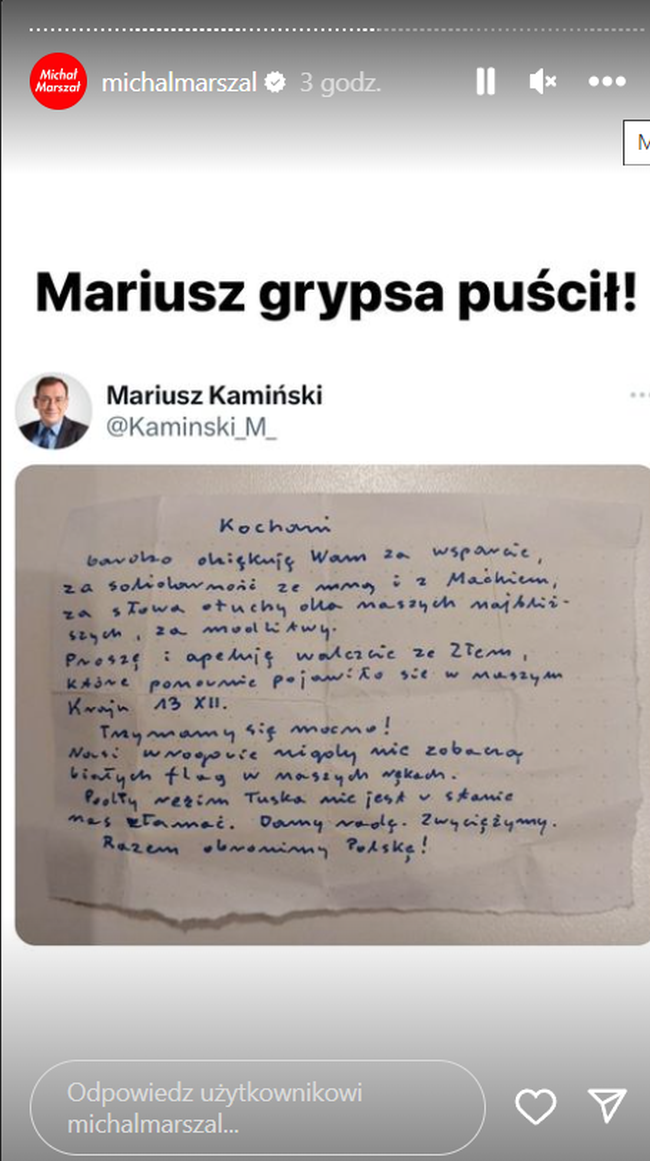 Michał
Marszał
michalmarszal
3 godz.
M
Mariusz grypsa puścił!
Mariusz Kamiński
@Kaminski_M_
Kochani
bardzo dziękuję Wam za wsparcie,
za solidarność ze mną i z Maćkiem,
za słowa otuchy dla naszych najbliż-
szych, za modlitwy.
Proszę i apeluję walczcie ze Złem,
które ponownie pojawiło się w naszym
Kraju 13 XII.
Trzymamy się mocno!
Nasi wrogowie nigdy nie zobaczą
białych flag w naszych rękach.
Podły reżim Tuska nie jest w stanie
nas złamać. Damy radę. Zwyciężymy.
Razem obronimy Polskę!
Odpowiedz użytkownikowi
michalmarszal...